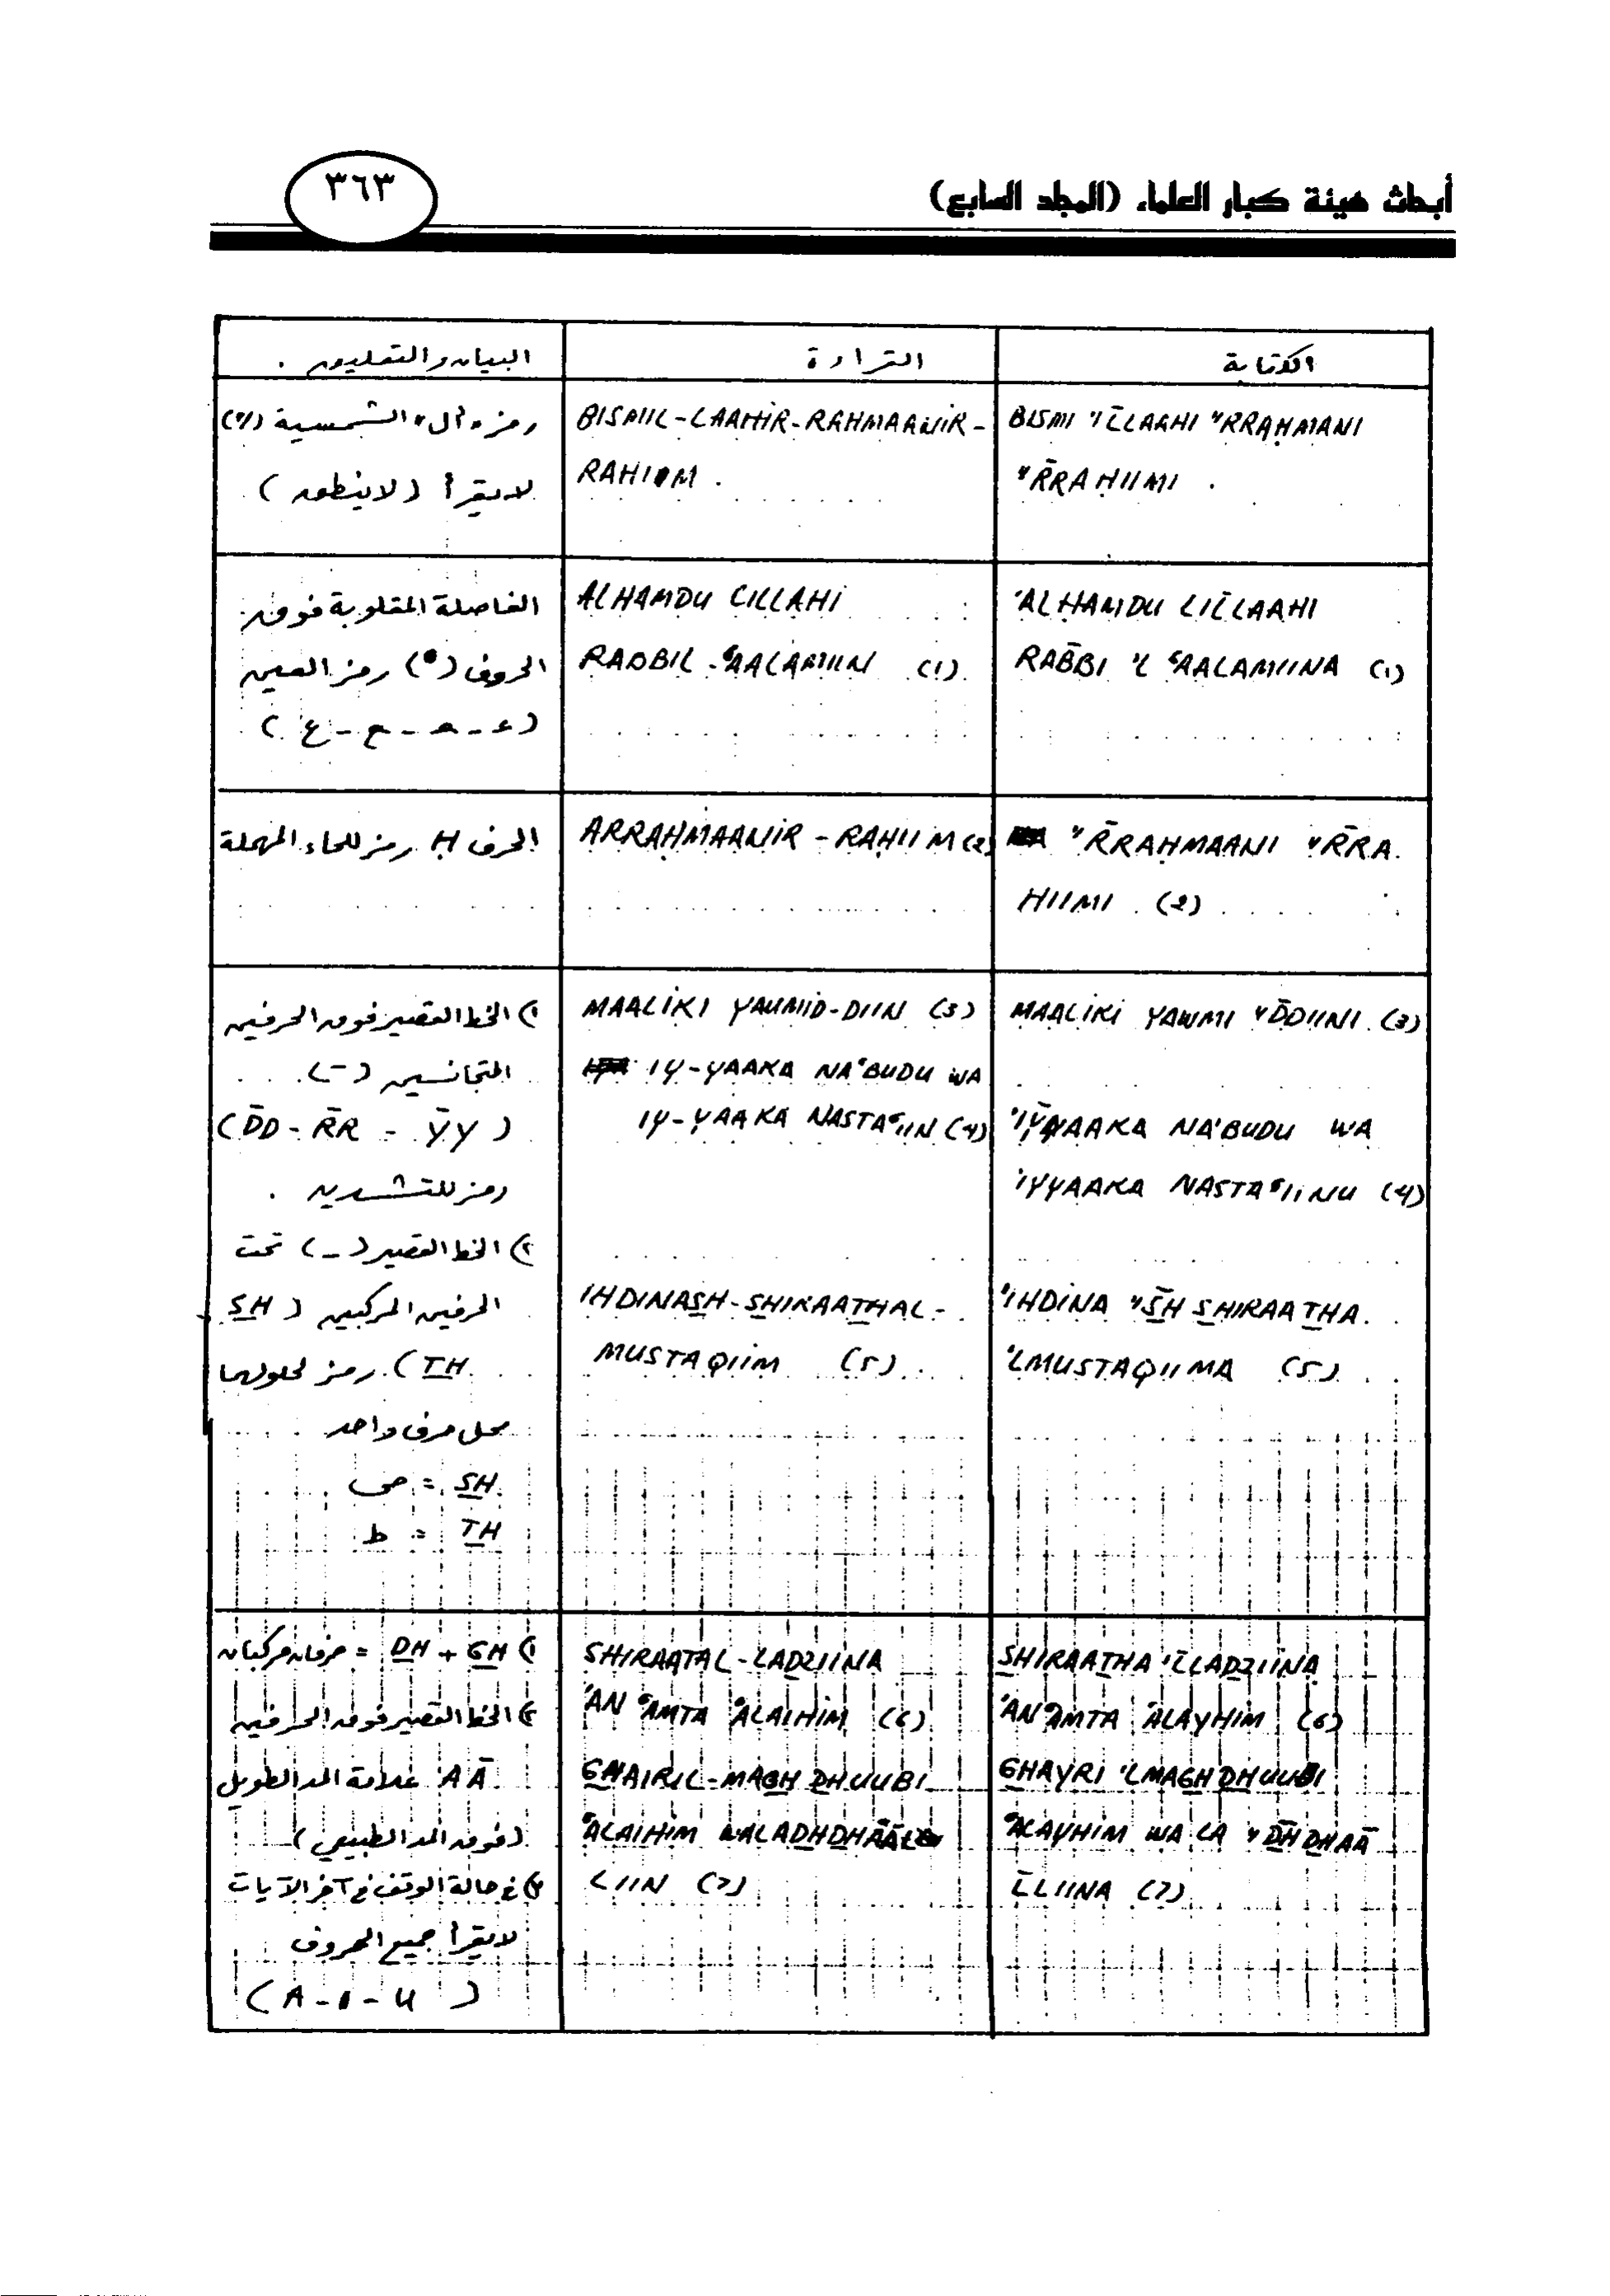 أبحاث هيئة كبار العلماء (المجلد السابع)
٣٦٣
الكتابة
القراءة
البيان والتعليق .
BISMI "L̄LAAHI "RRAḤMANI
"R̄RAHIIMI .
BISMIL-LAAHIR-RAHMAANIR-
RAHIIM .
رمز "ال" الشمسية (")
لا يقرأ (لا ينطق)
'ALHAMDU LIL̄LAAHI
RAB̄BI 'L ʿAALAMIINA (1)
ALHAMDU LILLAHI
RABBIL-ʿAALAMIIN (1)
الفاصلة المقلوبة فوق
الحروف (ʿ) رمز العين
(ع - ـعـ - ـع - ع)
"R̄RAHMAANI "R̄RA
HIIMI (2)
ARRAHMAANIR-RAHIIM (2)
الحرف Ḥ رمز للحاء المهملة
MAALIKI YAWMI "D̄DIINI (3)
'IȲYAAKA NA'BUDU WA
'IYYAAKA NASTAʿIINU (4)
'IHDINA "S̄H SHIRAATHA
'LMUSTAQIIMA (5)
MAALIKI YAUMID-DIIN (3)
IY-YAAKA NAʿBUDU WA
IY-YAAKA NASTAʿIIN (4)
IHDINASH-SHIRAATHAL-
MUSTAQIIM (5)
١) الخط القصير فوق الحرفين
المتجانسين (-)
(D̄D - R̄R - ȲY)
رمز للتشديد .
٢) الخط القصير (_) تحت
الحرفين المركبين (SH
TH) رمز لحلولهما
محل حرف واحد
SH = ص
TH = ط
SHIRAATHA 'L̄LADZIINA
'ANʿAMTA ʿALAYHIM (6)
GHAYRI 'LMAGHDHUUBI
ʿALAYHIM WA LA "D̄HDHAĀ
L̄LIINA (7)
SHIRAATAL-LADZIINA
'AN ʿAMTA ʿALAIHIM (6)
GHAIRIL-MAGHDHUUBI
ʿALAIHIM WALADHDHĀĀL
LIIN (7)
١) GH + DH = حرفان مركبان
٢) الخط القصير فوق الحرفين
AĀ علامة المد الطويل
(فوق المد الطبيعي)
٣) في حالة الوقف في آخر الآيات
لا يقرأ جميع الحروف
(A - I - U)